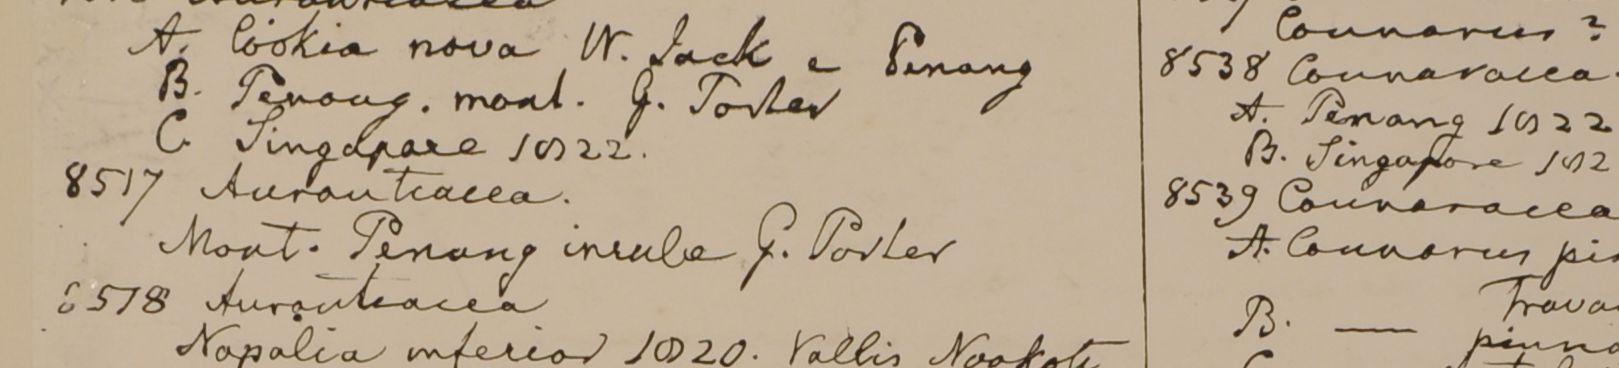 Aurantiacea
A. Cookia nova W. Jack e Penang
B. Penang. mont. G. Porter
C Singapore 1822.
8517 Aurantiacea.
Mont. Penang insula G. Porter
8518 Aurantiacea
Napalia inferior 1820. Vallis Noakote
Connarus?
8538 Connaracea.
A. Penang 1822
B. Singapore 182
8539 Connaracea
A. Connarus pin
B. — Trava
pinna